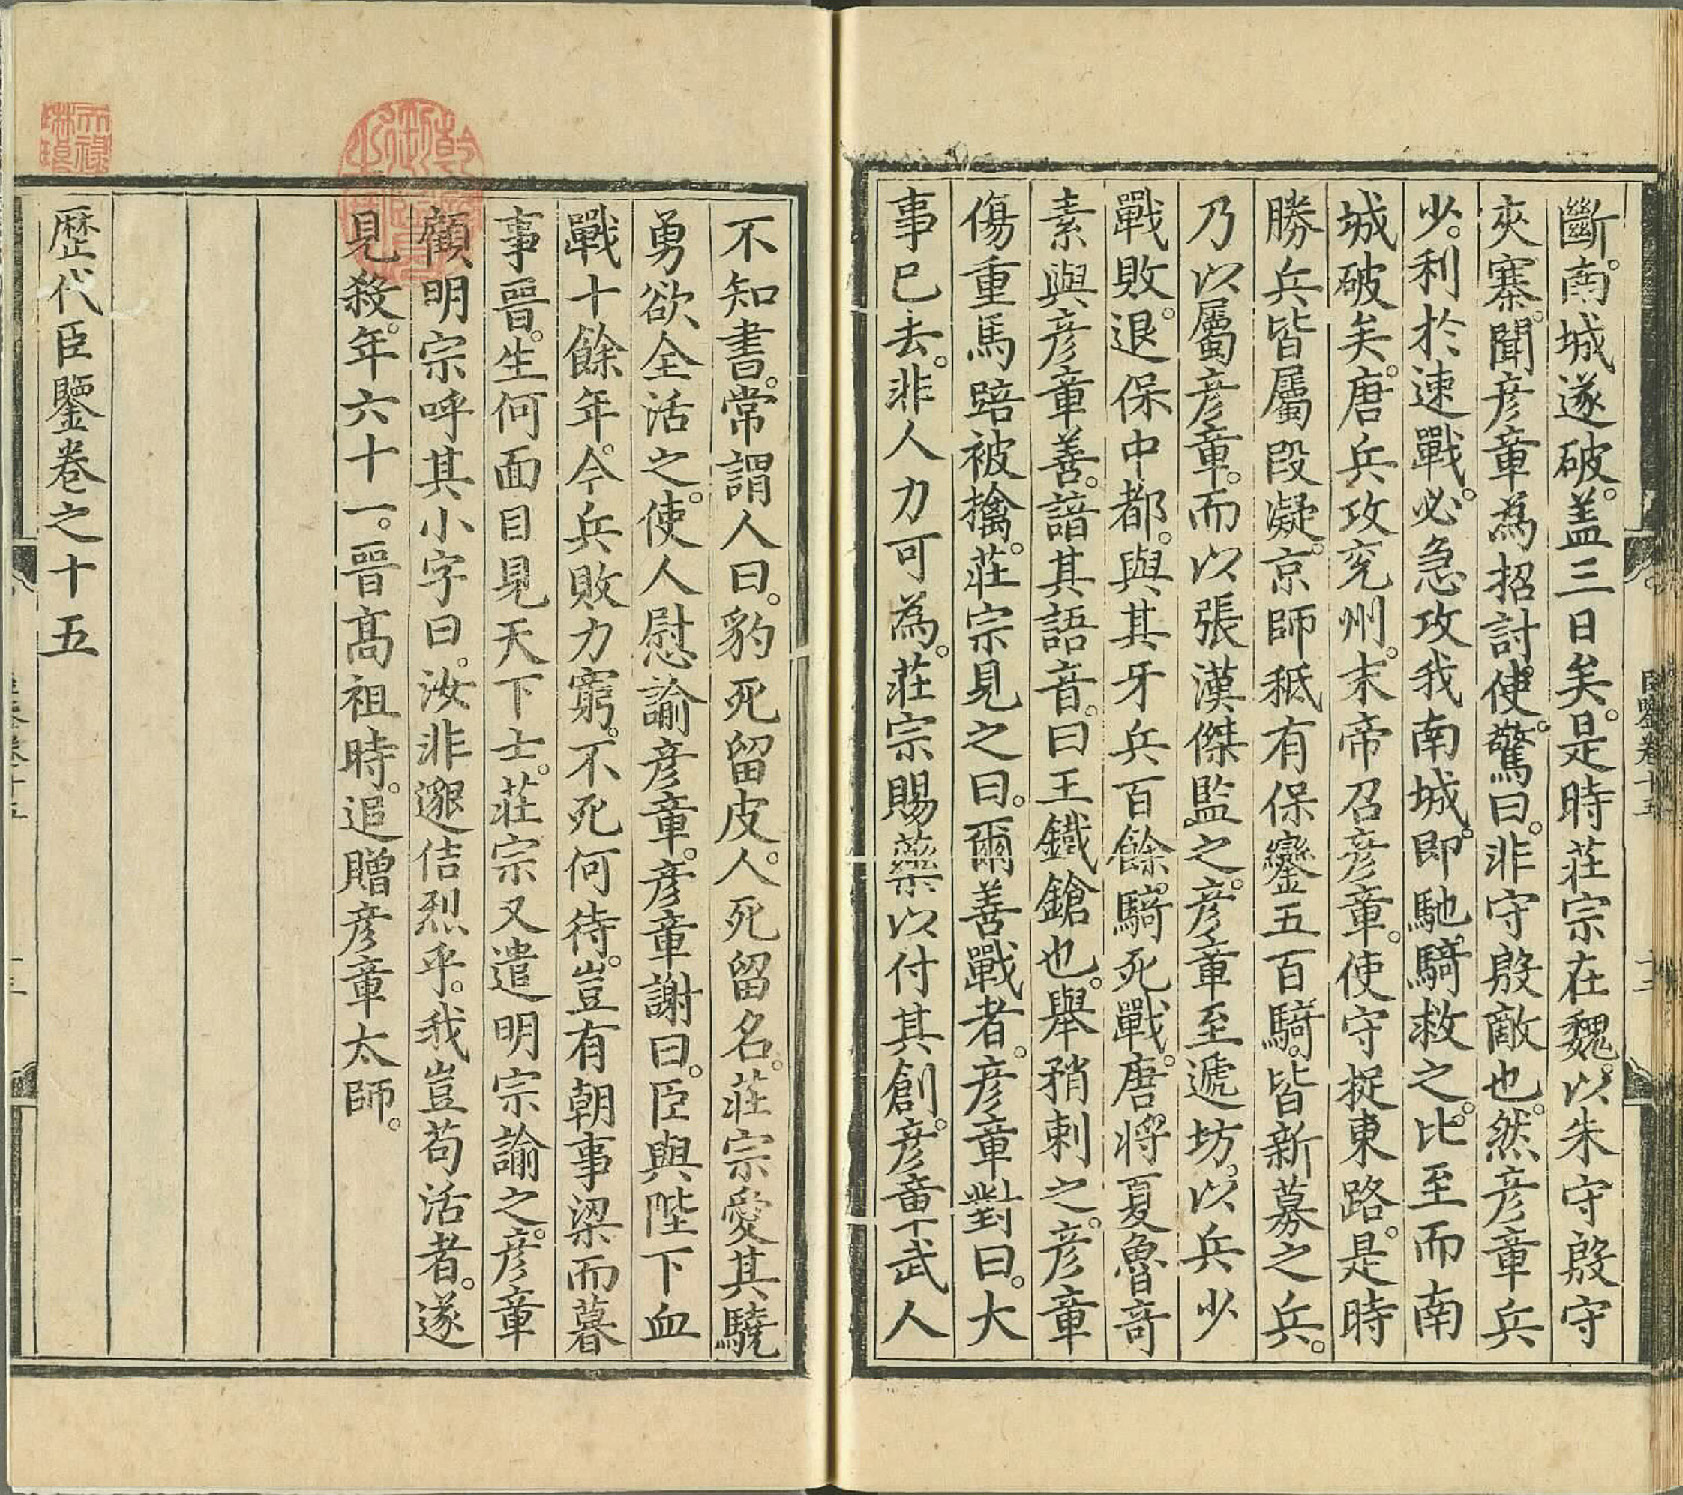 斷南城遂破。盖三日矣。是時莊宗在魏。以朱守殷守
夾寨。聞彦章為招討使。驚曰。非守殷敵也。然彦章兵
少。利於速戰。必急攻我南城。即馳騎救之。比至而南
城破矣。唐兵攻兖州。末帝召彦章。使守捉東路。是時
勝兵皆屬段凝。京師秪有保鑾五百騎。皆新募之兵。
乃以屬彦章。而以張漢傑監之。彦章至遞坊。以兵少
戰敗。退保中都。與其牙兵百餘騎死戰。唐將夏魯竒
素與彦章善。諳其語音。曰王鐡鎗也。舉矟刺之。彦章
傷重馬踣被擒。莊宗見之曰。爾善戰者。彦章對曰。大
事已去。非人力可為。莊宗賜藥以付其創。彦章武人
不知書。常謂人曰。豹死留皮。人死留名。莊宗愛其驍
勇欲全活之。使人慰諭彦章。彦章謝曰。臣與陛下血
戰十餘年。今兵敗力窮。不死何待。豈有朝事梁而暮
事晉。生何面目見天下士。莊宗又遣明宗諭之。彦章
顧明宗呼其小字曰。汝非邈佶烈乎。我豈苟活者。遂
見殺。年六十一。晉髙祖時。追贈彦章太師。
歷代臣鑒卷之十五